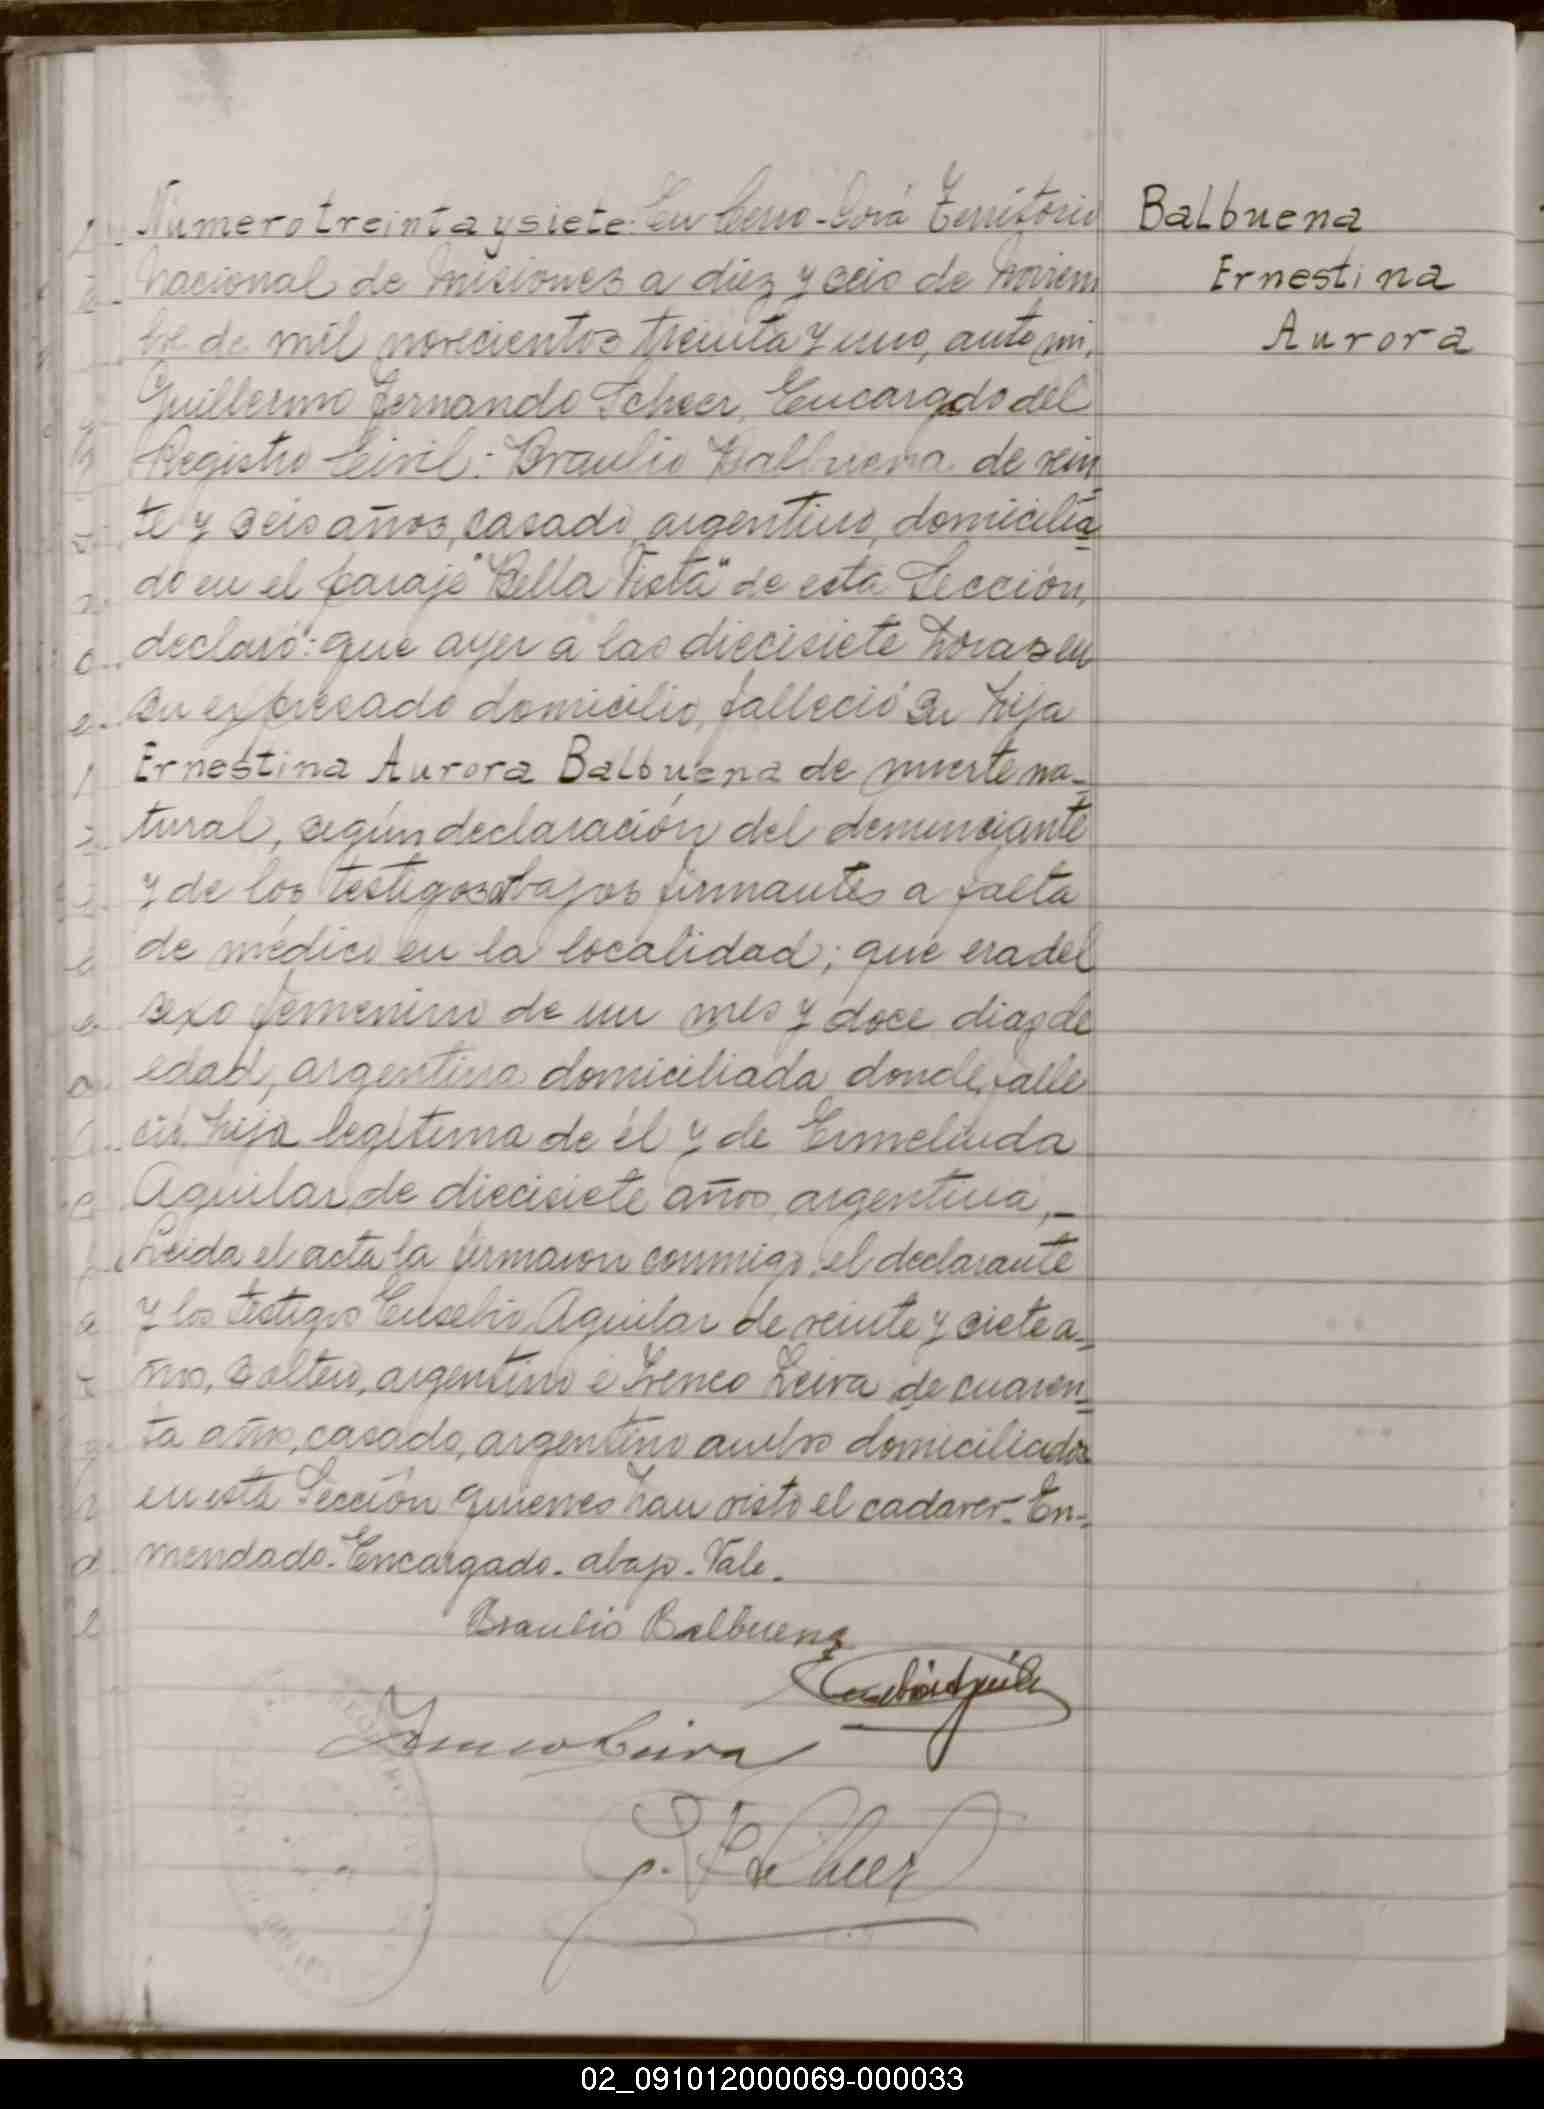 Numero treinta y siete: En Cerro-Corá Territorio
Nacional de Misiones a diez y seis de Noviem
bre de mil novecientos treinta y uno, ante mi,
Guillermo Fernando Scheer, Encargado del
Registro Civil: Braulio Balbuena de vein
te y seis años, casado, argentino, domicilia
do en el paraje "Bella Vista" de esta Sección,
declaró: que ayer a las diecisiete horas en
su expresado domicilio, falleció su hija
Ernestina Aurora Balbuena de muerte na-
tural, según declaración del denunciante
y de los testigos abajos firmantes a falta
de médico en la localidad; que era del
sexo femenino de un mes y doce dias de
edad, argentina domiciliada donde falle
ció, hija legítima de él y de Ermelinda
Aguilar, de diecisiete años, argentina,_
Leida el acta la firmaron conmigo, el declarante
y los testigos Eusebio Aguilar de veinte y siete a-
ños, soltero, argentino é Ireneo Leiva de cuaren-
ta años, casado, argentino ambos domiciliados
en esta Sección quienes han visto el cadaver- En-
mendado- Encargado- abajo- Vale-
Braulio Balbuena
Eusebio Aguilar
Ireneo Leiva
G. F. Scheer
Balbuena
Ernestina
Aurora
02_091012000069-000033